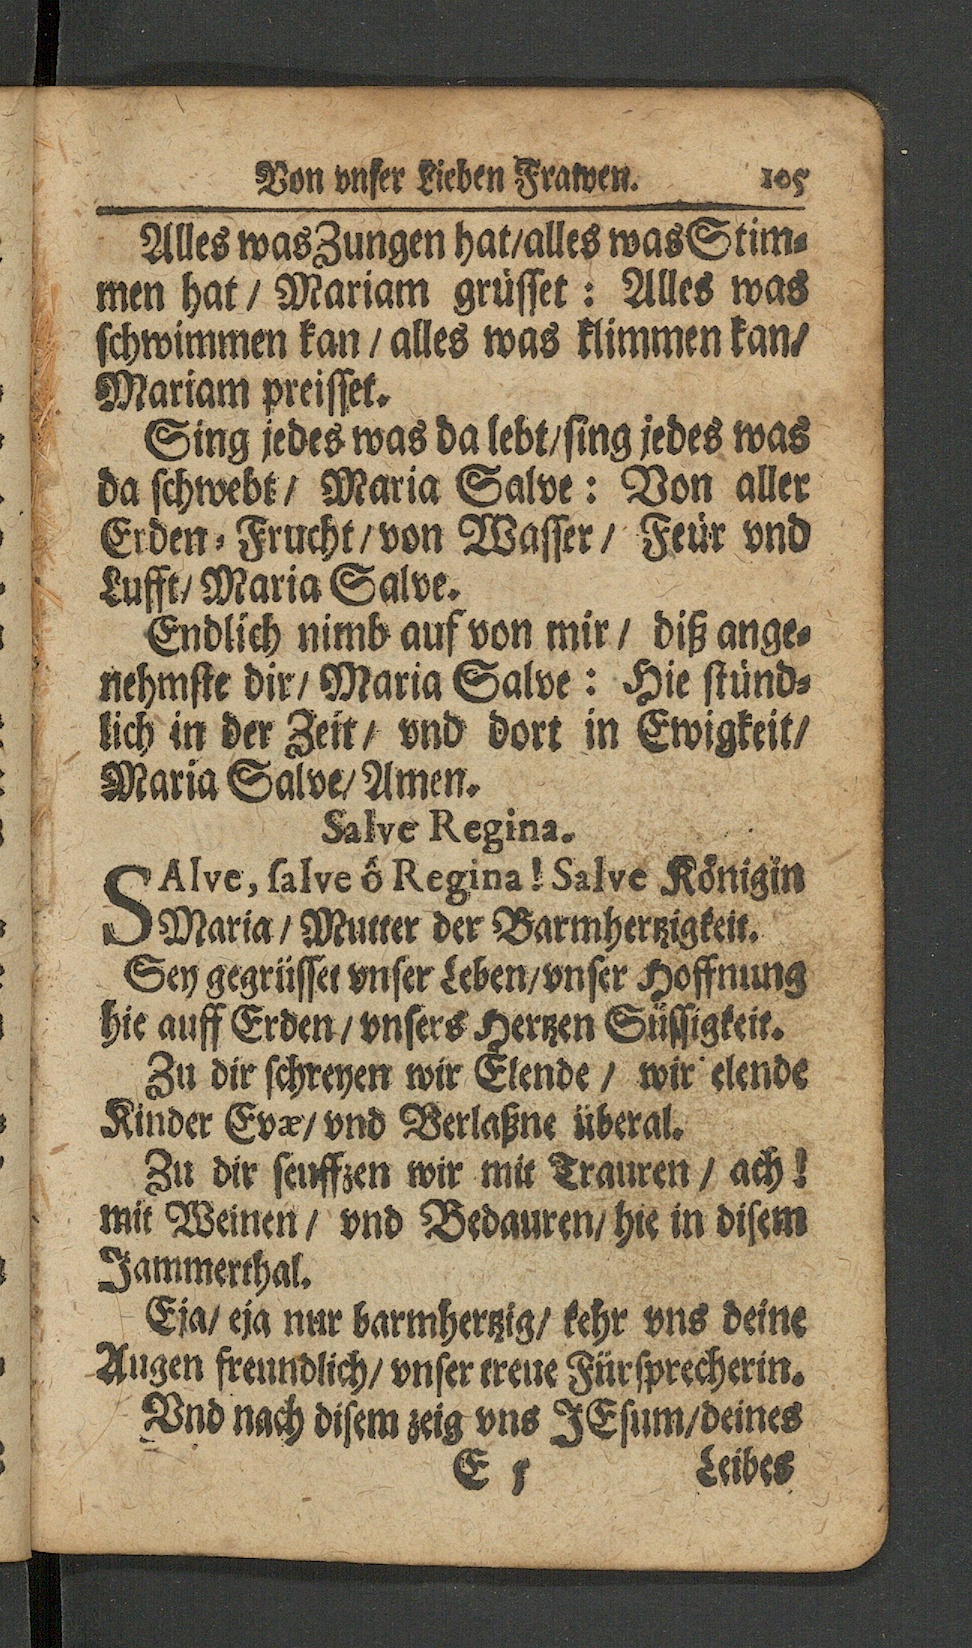 Von vnser Lieben Frawen. 105
Alles was Zungen hat/alles was Stim-
men hat / Mariam grüsset : Alles was
schwimmen kan / alles was klimmen kan/
Mariam preisset.
Sing jedes was da lebt/sing jedes was
da schwebt / Maria Salve : Von aller
Erden-Frucht/von Wasser / Feür vnd
Lufft/ Maria Salve.
Endlich nimb auf von mir / diß ange-
nehmste dir/ Maria Salve : Hie stünd-
lich in der Zeit / vnd dort in Ewigkeit/
Maria Salve/ Amen.
Salve Regina.
SAlve, salve ô Regina! Salve Königin
Maria / Mutter der Barmhertzigkeit.
Sey gegrüsset vnser Leben/vnser Hoffnung
hie auff Erden / vnsers Hertzen Süssigkeit.
Zu dir schreyen wir Elende / wir elende
Kinder Evæ/ vnd Verlaßne überal.
Zu dir seuffzen wir mit Trauren / ach!
mit Weinen / vnd Bedauren/ hie in disem
Jammerthal.
Eja/ eja nur barmhertzig/ kehr vns deine
Augen freundlich/ vnser treue Fürsprecherin.
Vnd nach disem zeig vns JEsum/deines
E 5 Leibes